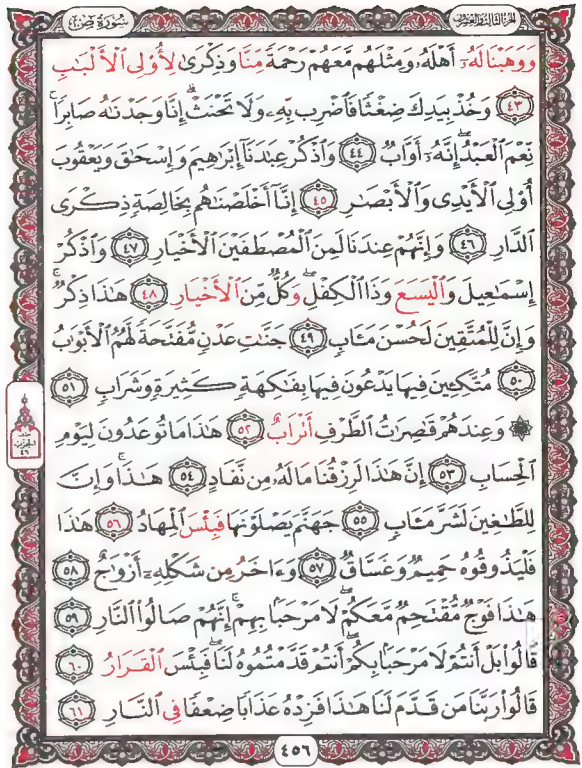 سُورَةُ صٓ
الجزء الثالث والعشرون
وَوَهَبْنَا لَهُۥٓ أَهْلَهُۥ وَمِثْلَهُم مَّعَهُمْ رَحْمَةً مِّنَّا وَذِكْرَىٰ لِأُو۟لِى ٱلْأَلْبَـٰبِ
٤٣ وَخُذْ بِيَدِكَ ضِغْثًا فَٱضْرِب بِّهِۦ وَلَا تَحْنَثْ ۗ إِنَّا وَجَدْنَـٰهُ صَابِرًا ۚ
نِّعْمَ ٱلْعَبْدُ ۖ إِنَّهُۥٓ أَوَّابٌ ٤٤ وَٱذْكُرْ عِبَـٰدَنَآ إِبْرَٰهِيمَ وَإِسْحَـٰقَ وَيَعْقُوبَ
أُو۟لِى ٱلْأَيْدِى وَٱلْأَبْصَـٰرِ ٤٥ إِنَّآ أَخْلَصْنَـٰهُم بِخَالِصَةٍ ذِكْرَى
ٱلدَّارِ ٤٦ وَإِنَّهُمْ عِندَنَا لَمِنَ ٱلْمُصْطَفَيْنَ ٱلْأَخْيَارِ ٤٧ وَٱذْكُرْ
إِسْمَـٰعِيلَ وَٱلْيَسَعَ وَذَا ٱلْكِفْلِ ۖ وَكُلٌّ مِّنَ ٱلْأَخْيَارِ ٤٨ هَـٰذَا ذِكْرٌ ۚ
وَإِنَّ لِلْمُتَّقِينَ لَحُسْنَ مَـَٔابٍ ٤٩ جَنَّـٰتِ عَدْنٍ مُّفَتَّحَةً لَّهُمُ ٱلْأَبْوَٰبُ
٥٠ مُتَّكِـِٔينَ فِيهَا يَدْعُونَ فِيهَا بِفَـٰكِهَةٍ كَثِيرَةٍ وَشَرَابٍ ٥١
۞ وَعِندَهُمْ قَـٰصِرَٰتُ ٱلطَّرْفِ أَتْرَابٌ ٥٢ هَـٰذَا مَا تُوعَدُونَ لِيَوْمِ
ٱلْحِسَابِ ٥٣ إِنَّ هَـٰذَا لَرِزْقُنَا مَا لَهُۥ مِن نَّفَادٍ ٥٤ هَـٰذَا ۚ وَإِنَّ
لِلطَّـٰغِينَ لَشَرَّ مَـَٔابٍ ٥٥ جَهَنَّمَ يَصْلَوْنَهَا فَبِئْسَ ٱلْمِهَادُ ٥٦ هَـٰذَا
فَلْيَذُوقُوهُ حَمِيمٌ وَغَسَّاقٌ ٥٧ وَءَاخَرُ مِن شَكْلِهِۦٓ أَزْوَٰجٌ ٥٨
هَـٰذَا فَوْجٌ مُّقْتَحِمٌ مَّعَكُمْ ۖ لَا مَرْحَبًۢا بِهِمْ ۚ إِنَّهُمْ صَالُوا۟ ٱلنَّارِ ٥٩
قَالُوا۟ بَلْ أَنتُمْ لَا مَرْحَبًۢا بِكُمْ ۖ أَنتُمْ قَدَّمْتُمُوهُ لَنَا ۖ فَبِئْسَ ٱلْقَرَارُ ٦٠
قَالُوا۟ رَبَّنَا مَن قَدَّمَ لَنَا هَـٰذَا فَزِدْهُ عَذَابًا ضِعْفًا فِى ٱلنَّارِ ٦١
٤٥٦